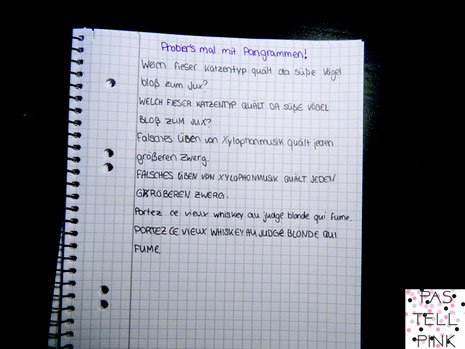 Prober's mal mit Pangrammen!
Welch fieser Katzentyp quält da süße Vögel
bloß zum Jux?
WELCH FIESER KATZENTYP QUÄLT DA SÜßE VÖGEL
BLOß ZUM JUX?
Falsches Üben von Xylophonmusik quält jeden
größeren Zwerg.
FALSCHES ÜBEN VON XYLOPHONMUSIK QUÄLT JEDEN
GRÖßEREN ZWERG.
Portez ce vieux whiskey au judge blonde qui fume.
PORTEZ CE VIEUX WHISKEY AU JUDGE BLONDE QUI
FUME.
PAS
TELL
PINK